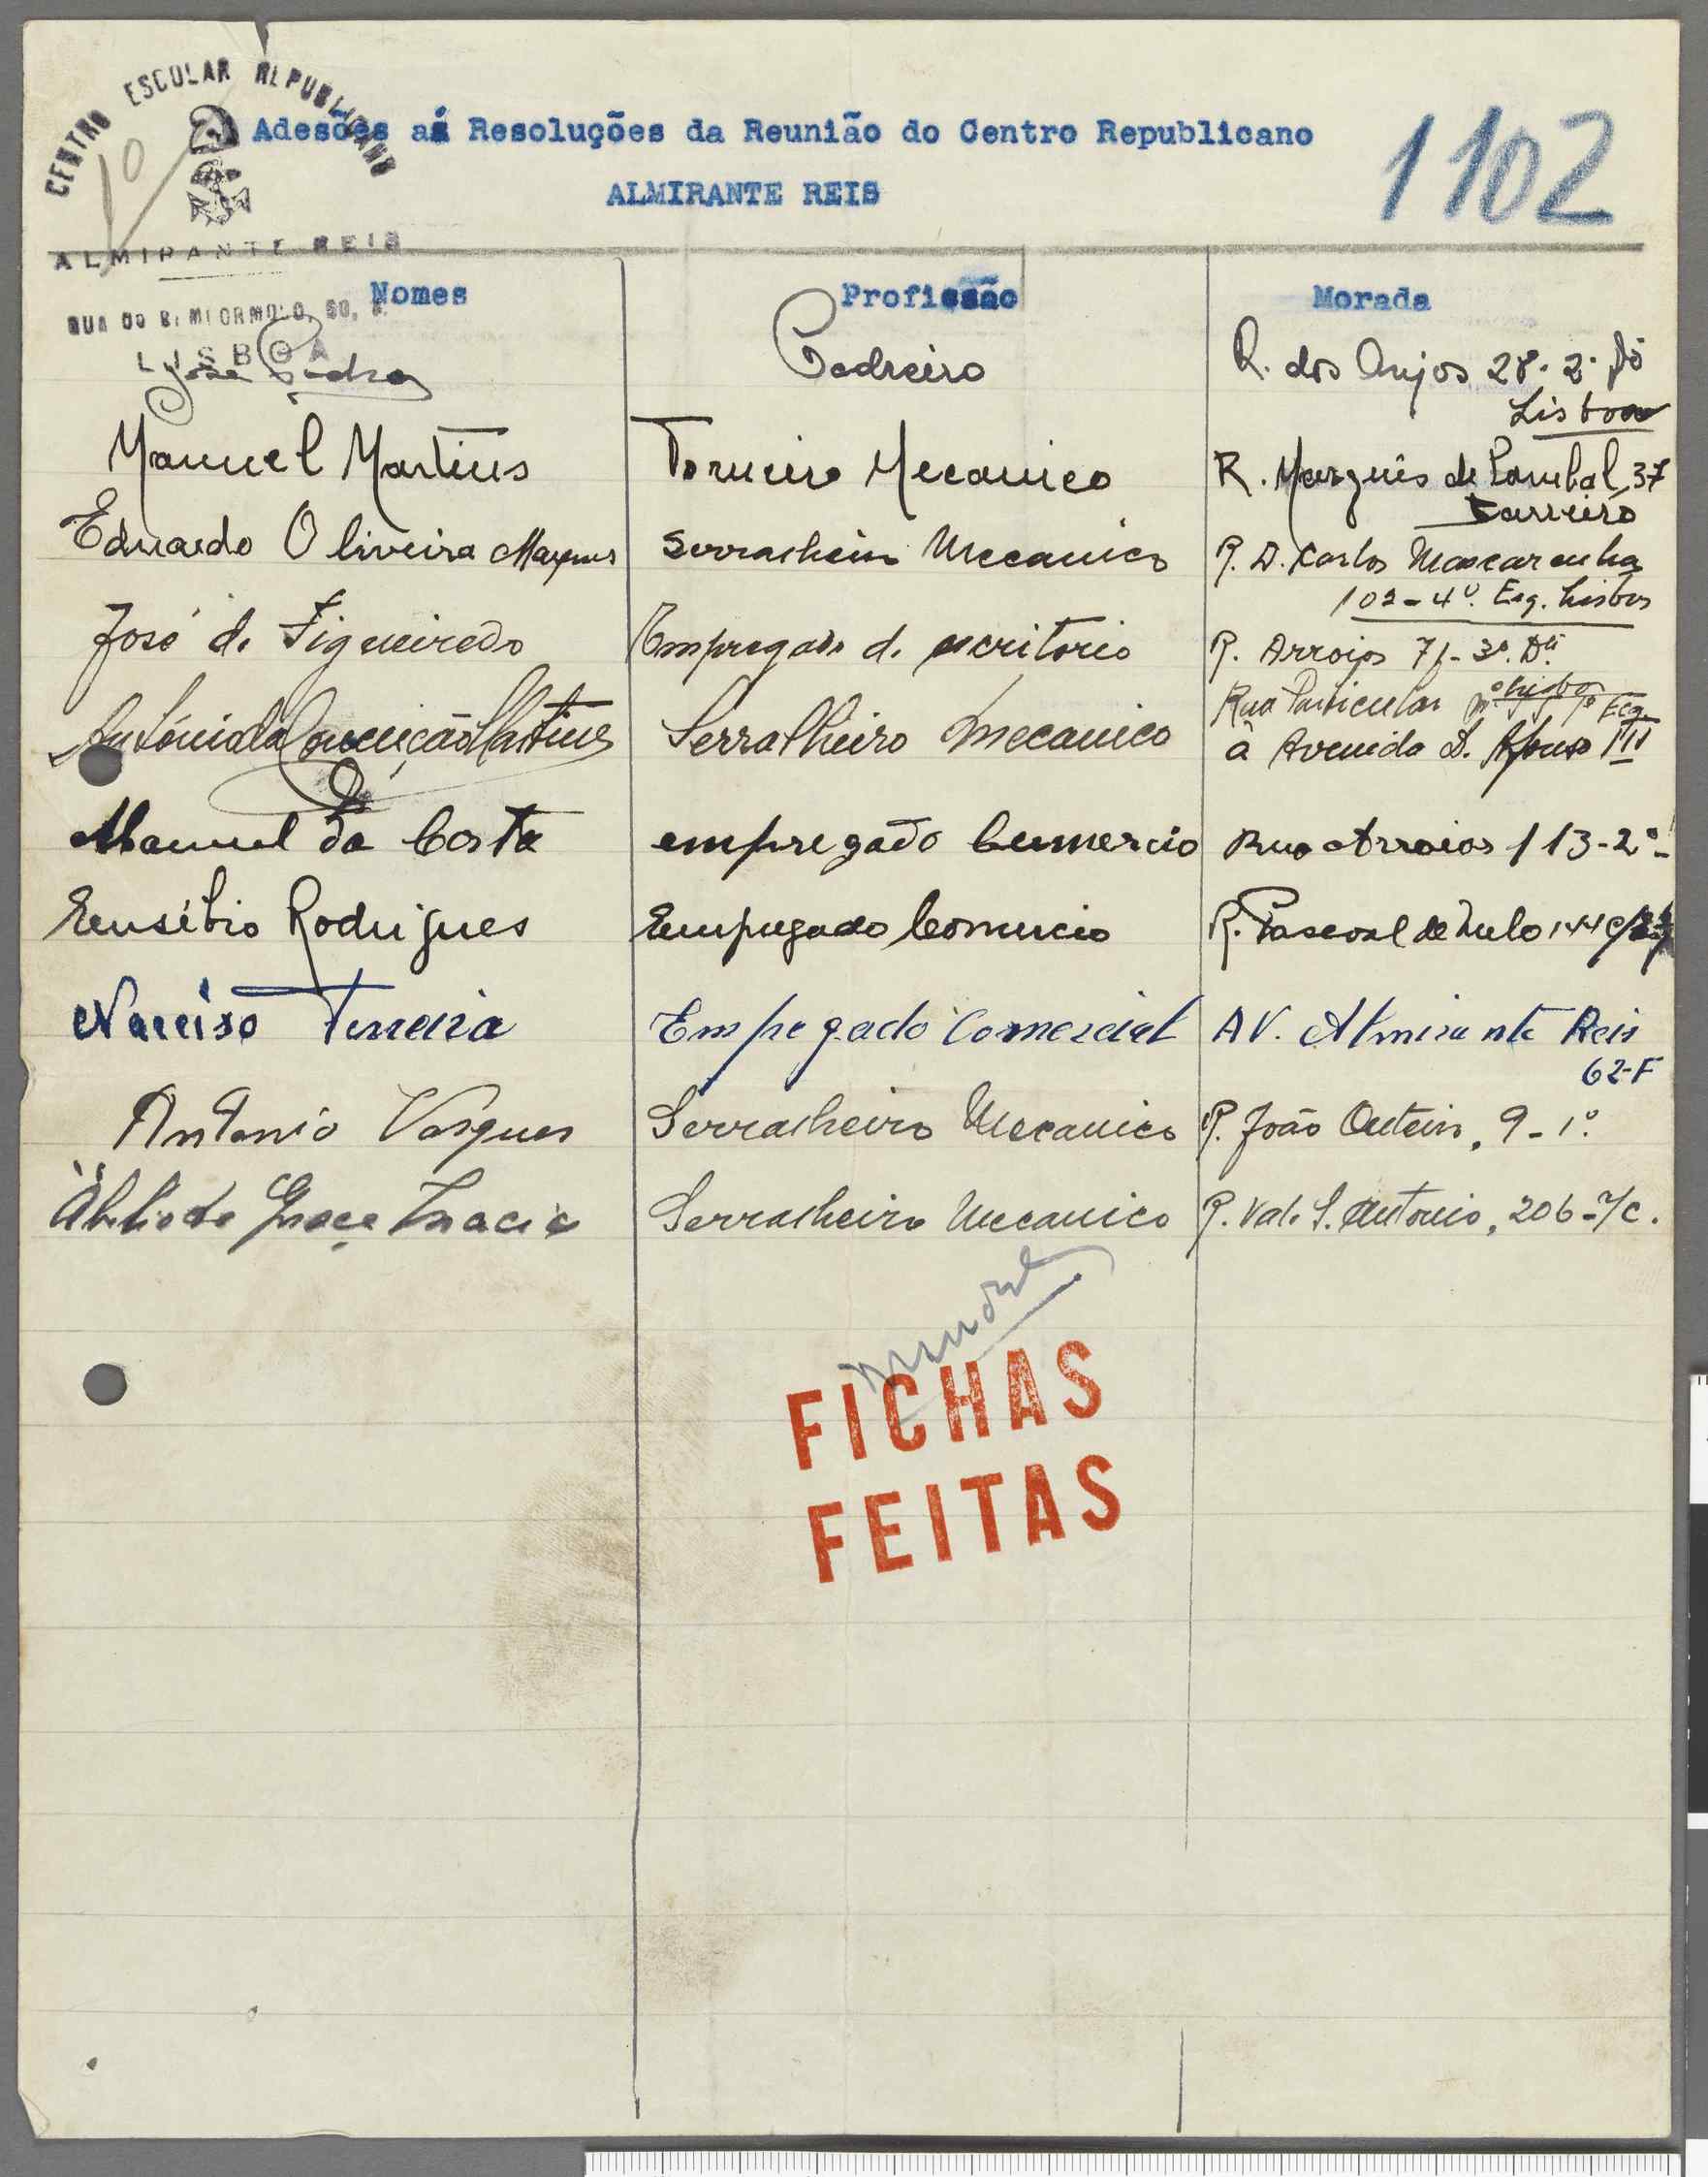 CENTRO ESCOLAR REPUBLICANO
10
ALMIRANTE REIS
LISBOA
Adesões aś Resoluções da Reunião do Centro Republicano
ALMIRANTE REIS
1102
Nomes Profissão Morada
José Pedro Pedreiro R. dos Anjos 28-2º
Lisboa
Manuel Martins Torneiro Mecanico R. Marquês de Pombal, 37
Barreiro
Eduardo Oliveira Marques Serralheiro Mecanico R. D. Carlos Mascarenhas
102-4º. Esq. Lisboa
José de Figueiredo Empregado de escritorio R. Arroios 71-3º. Dtº
Lisboa
António da Conceição Martins Serralheiro Mecanico Rua Particular Esq.
à Avenida D. Afonso III
Manuel da Costa empregado Comercio Rua Arroios 113-2º-
Eusébio Rodrigues Empregado Comercio R. Pascoal de Melo 144
Narciso Ferreira Empregado Comercial AV. Almirante Reis
62-F
Antonio Vasques Serralheiro Mecanico R. João Outeiro, 9-1º.
Abilio da Graça Inacio Serralheiro Mecanico R. Vale S. Antonio, 206-r/c.
FICHAS
FEITAS